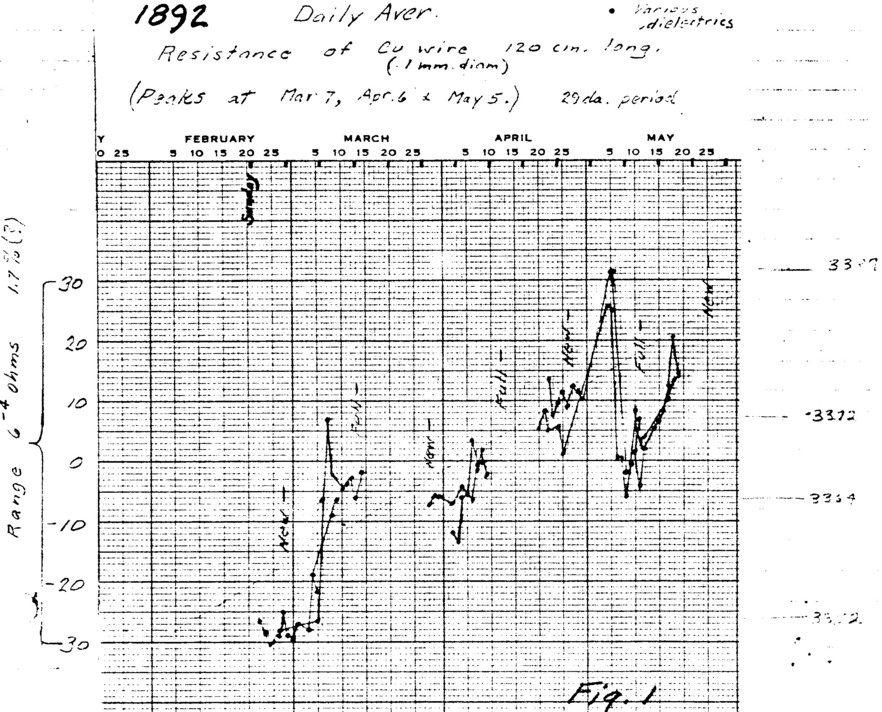 1892 Daily Aver. • Various
dielectrics
Resistance of Cu wire 120 cm. long.
(.1 mm. diam)
(Peaks at Mar 7, Apr. 6 & May 5.) 29 da. period
Y FEBRUARY MARCH APRIL MAY
0 25 5 10 15 20 25 5 10 15 20 25 5 10 15 20 25 5 10 15 20 25
Sunday
Range 6⁻⁴ ohms 1.7%(?)
30
20
10
0
-10
-20
-30
New
Full
New
Full
New
Full
New
3372
3364
Fig. 1